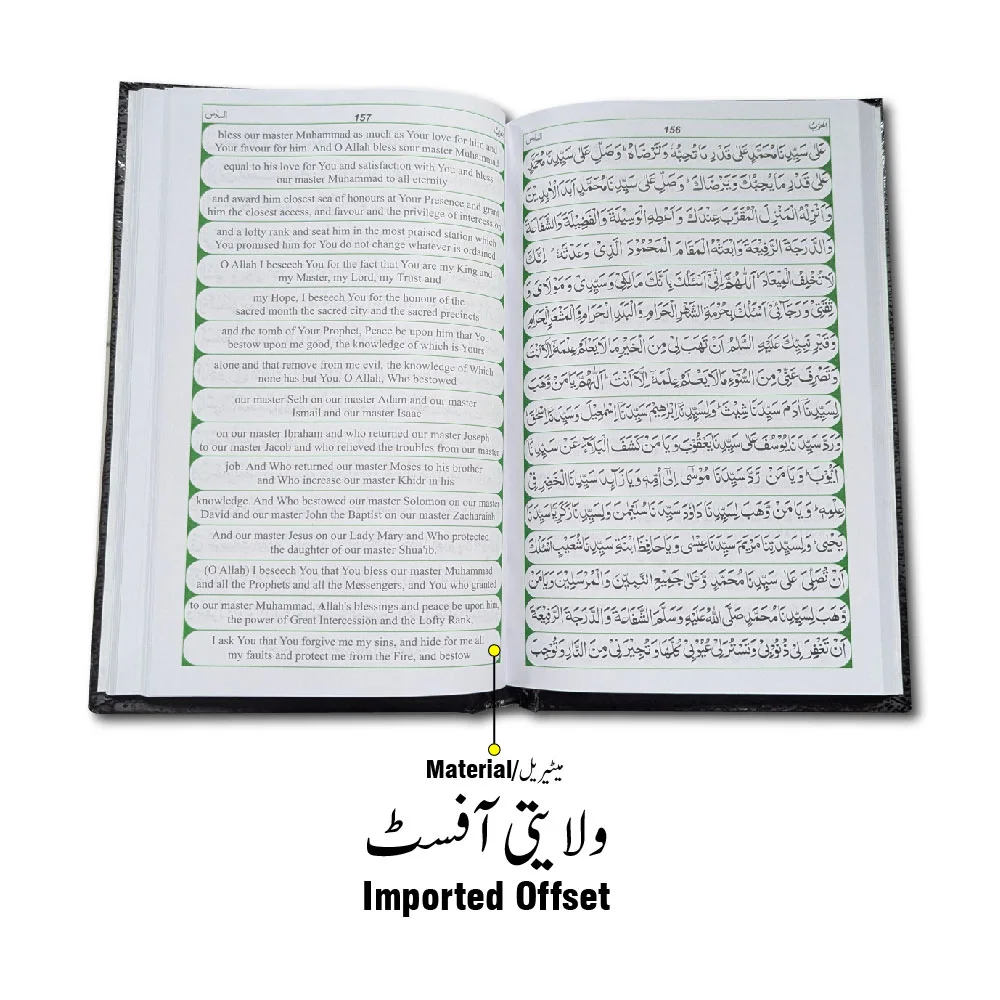 الحزب 156 السادس
عَلٰى سَيِّدِنَا مُحَمَّدٍ عَلٰى قَدْرِ مَا تُحِبُّهٗ وَتَرْضَاهُ وَصَلِّ عَلٰى سَيِّدِنَا مُحَمَّدٍ
عَلٰى قَدْرِ مَا يُحِبُّكَ وَيَرْضَاكَ وَصَلِّ عَلٰى سَيِّدِنَا مُحَمَّدٍ اَبَدَ الْاٰبِدِيْنَ
وَاَنْزِلْهُ الْمَنْزِلَ الْمُقَرَّبَ عِنْدَكَ وَاَعْطِهِ الْوَسِيْلَةَ وَالْفَضِيْلَةَ وَالشَّفَاعَةَ
وَالدَّرَجَةَ الرَّفِيْعَةَ وَابْعَثْهُ الْمَقَامَ الْمَحْمُوْدَ الَّذِيْ وَعَدْتَّهٗ اِنَّكَ
لَا تُخْلِفُ الْمِيْعَادَ اَللّٰهُمَّ اِنِّيْ اَسْئَلُكَ بِاَنَّكَ مَالِكِيْ وَسَيِّدِيْ وَمَوْلَايَ وَ
ثِقَتِيْ وَرَجَائِيْ اَسْئَلُكَ بِحُرْمَةِ الشَّهْرِ الْحَرَامِ وَالْبَلَدِ الْحَرَامِ وَالْمَشْعَرِ الْحَرَامِ
وَقَبْرِ نَبِيِّكَ عَلَيْهِ السَّلٰمُ اَنْ تَهَبَ لِيْ مِنَ الْخَيْرِ مَا لَا يَعْلَمُ عِلْمَهٗ اِلَّا اَنْتَ
وَتَصْرِفَ عَنِّيْ مِنَ السُّوْءِ مَا لَا يَعْلَمُ عِلْمَهٗ اِلَّا اَنْتَ اَللّٰهُمَّ يَا مَنْ وَهَبَ
لِسَيِّدِنَا اٰدَمَ سَيِّدَنَا شِيْثَ وَلِسَيِّدِنَا اِبْرَاهِيْمَ سَيِّدَنَا اِسْمٰعِيْلَ وَسَيِّدَنَا اِسْحٰقَ
وَرَدَّ سَيِّدَنَا يُوْسُفَ عَلٰى سَيِّدِنَا يَعْقُوْبَ وَيَا مَنْ كَشَفَ الْبَلَاءَ عَنْ سَيِّدِنَا
اَيُّوْبَ وَيَا مَنْ رَدَّ سَيِّدَنَا مُوْسٰى اِلٰى اُمِّهٖ وَيَا زَائِدَ سَيِّدِنَا الْخَضِرِ فِيْ
عِلْمِهٖ وَيَا مَنْ وَّهَبَ لِسَيِّدِنَا دَاوٗدَ سَيِّدَنَا سُلَيْمٰنَ وَلِسَيِّدِنَا زَكَرِيَّا سَيِّدَنَا
يَحْيٰى وَلِسَيِّدَتِنَا مَرْيَمَ سَيِّدَنَا عِيْسٰى وَيَا حَافِظَ ابْنَةِ سَيِّدِنَا شُعَيْبٍ اَسْئَلُكَ
اَنْ تُصَلِّيَ عَلٰى سَيِّدِنَا مُحَمَّدٍ وَّعَلٰى جَمِيْعِ النَّبِيّٖنَ وَالْمُرْسَلِيْنَ وَيَا مَنْ
وَّهَبَ لِسَيِّدِنَا مُحَمَّدٍ صَلَّى اللّٰهُ عَلَيْهِ وَسَلَّمَ الشَّفَاعَةَ وَالدَّرَجَةَ الرَّفِيْعَةَ
اَنْ تَغْفِرَ لِيْ ذُنُوْبِيْ وَتَسْتُرَ لِيْ عُيُوْبِيْ كُلَّهَا وَتُجِيْرَنِيْ مِنَ النَّارِ وَتُوْجِبَ
الحزب 157 السادس
bless our master Muhammad as much as Your love for him and
Your favour for him. And O Allah bless sour master Muhammad
equal to his love for You and satisfaction with You and bless
our master Muhammad to all eternity
and award him closest sea of honours at Your Presence and grant
him the closest access, and favour and the privilege of intercession
and a lofty rank and seat him in the most praised station which
You promised him for You do not change whatever is ordained
O Allah I beseech You for the fact that You are my King and
my Master, my Lord, my Trust and
my Hope, I beseech You for the honour of the
sacred month the sacred city and the sacred precincts
and the tomb of Your Prophet, Peace be upon him that You
bestow upon me good, the knowledge of which is Yours
alone and that remove from me evil, the knowledge of Which
none has but You. O Allah, Who bestowed
our master Seth on our master Adam and our master
Ismail and our master Isaac
on our master Ibraham and who returned our master Joseph
to our master Jacob and who relieved the troubles from our master
job. And Who returned our master Moses to his brother
and Who increase our master Khidr in his
knowledge. And Who bestowed our master Solomon on our master
David and our master John the Baptist on our master Zacharaiah
And our master Jesus on our Lady Mary and Who protected
the daughter of our master Shua'ib.
(O Allah) I beseech You that You bless our master Muhammad
and all the Prophets and all the Messengers, and You who granted
to our master Muhammad, Allah's blessings and peace be upon him,
the power of Great Intercession and the Lofty Rank.
I ask You that You forgive me my sins, and hide for me all
my faults and protect me from the Fire, and bestow
Material/میٹیریل
ولایتی آفسٹ
Imported Offset